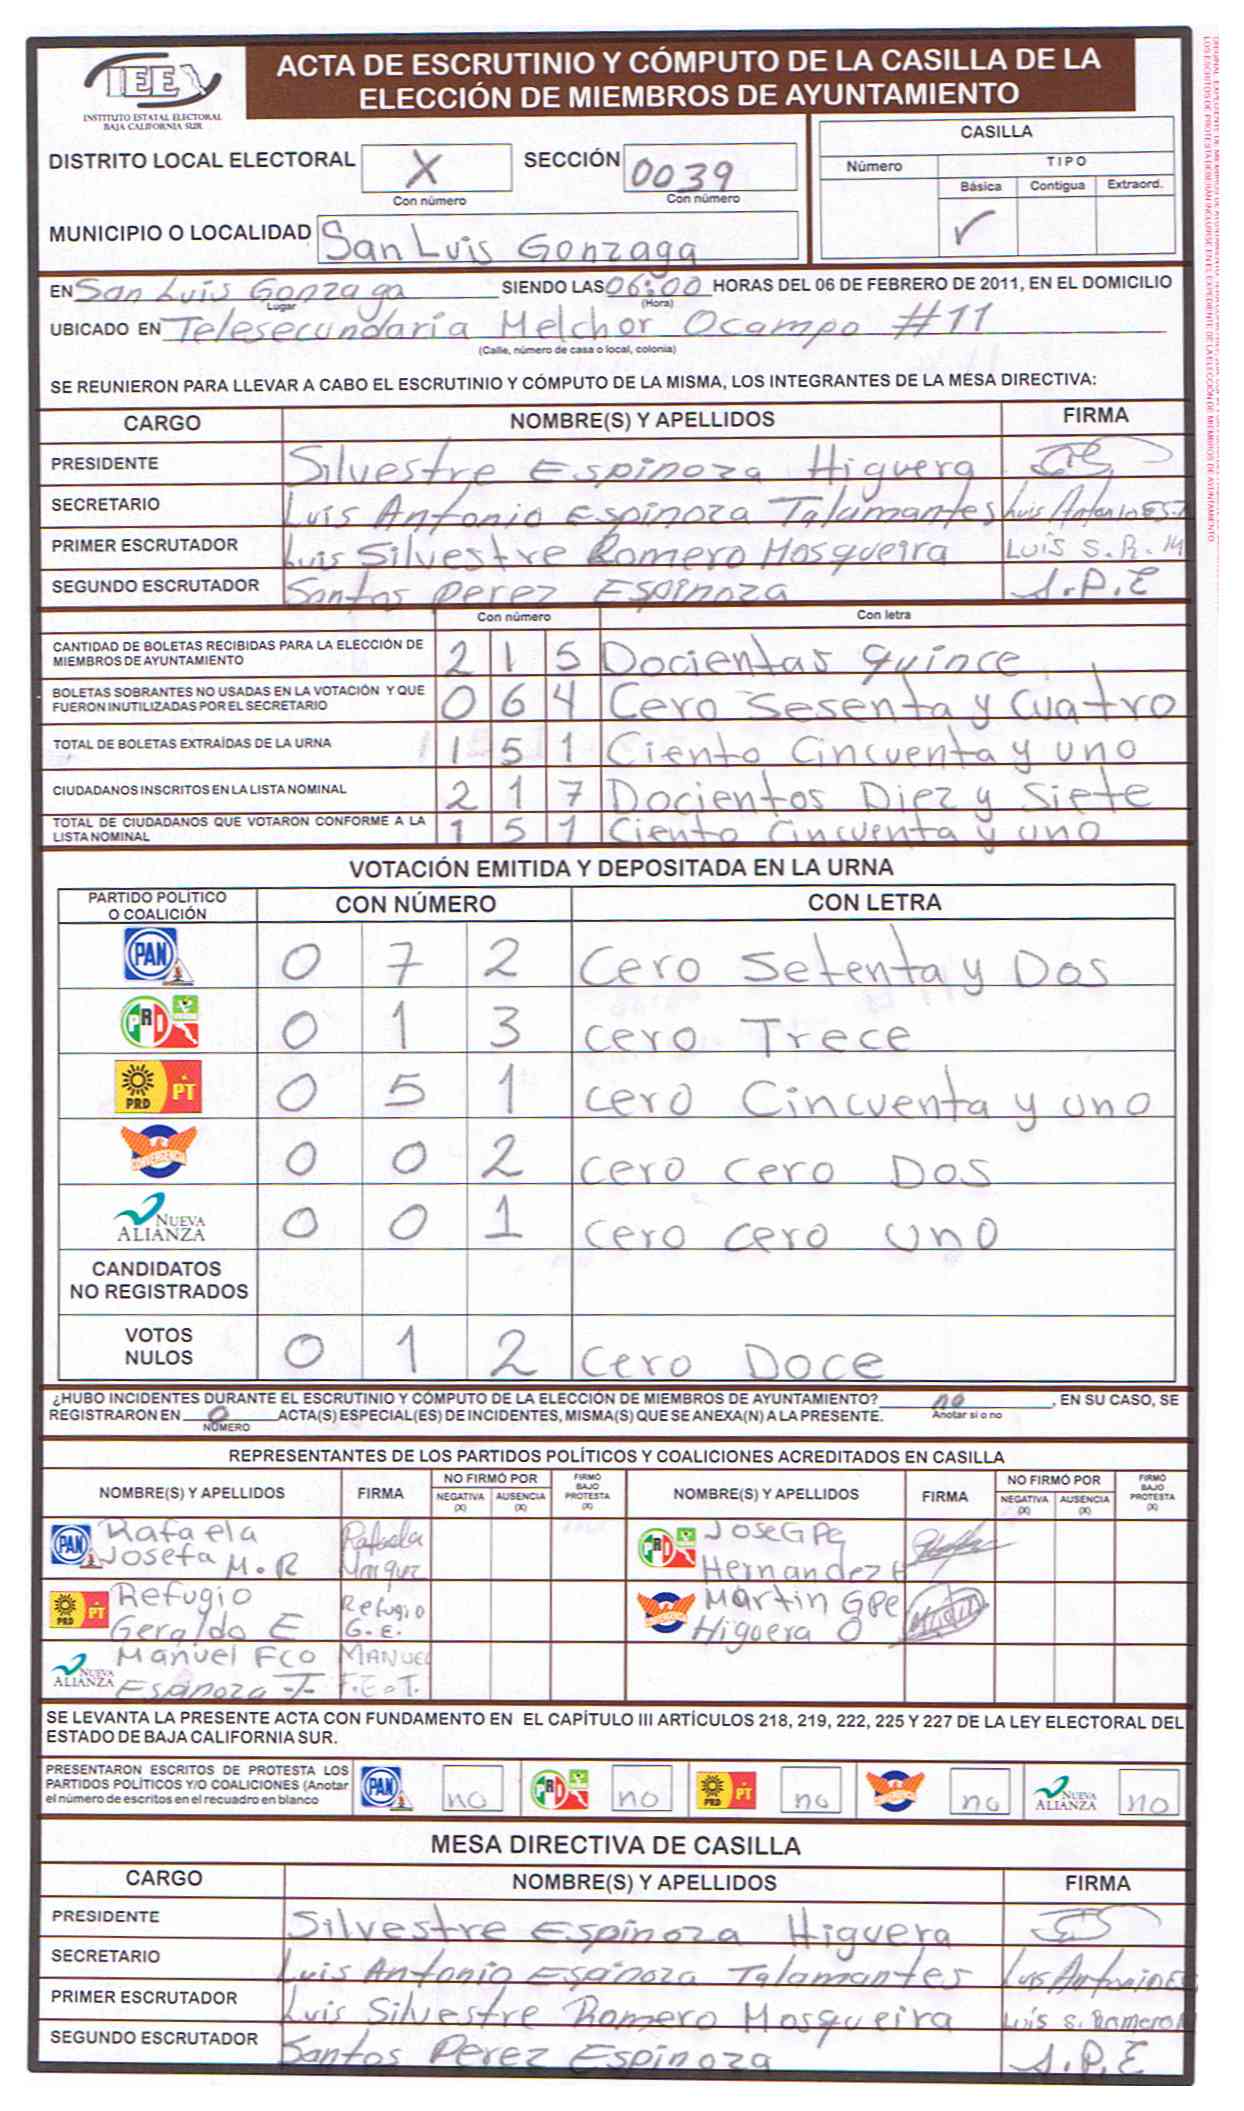 IEE
INSTITUTO ESTATAL ELECTORAL
BAJA CALIFORNIA SUR
ACTA DE ESCRUTINIO Y CÓMPUTO DE LA CASILLA DE LA
ELECCIÓN DE MIEMBROS DE AYUNTAMIENTO
DISTRITO LOCAL ELECTORAL X SECCIÓN 0039
Con número Con número
MUNICIPIO O LOCALIDAD San Luis Gonzaga
CASILLA
Número TIPO
Básica Contigua Extraord.
✓
EN San Luis Gonzaga SIENDO LAS 06:00 HORAS DEL 06 DE FEBRERO DE 2011, EN EL DOMICILIO
Lugar (Hora)
UBICADO EN Telesecundaria Melchor Ocampo #11
(Calle, número de casa o local, colonia)
SE REUNIERON PARA LLEVAR A CABO EL ESCRUTINIO Y CÓMPUTO DE LA MISMA, LOS INTEGRANTES DE LA MESA DIRECTIVA:
CARGO NOMBRE(S) Y APELLIDOS FIRMA
PRESIDENTE Silvestre Espinoza Higuera
SECRETARIO Luis Antonio Espinoza Talamantes Luis Antonio
PRIMER ESCRUTADOR Luis Silvestre Romero Mosqueira Luis S. R. M
SEGUNDO ESCRUTADOR Santos Perez Espinoza S.P.E
Con número Con letra
CANTIDAD DE BOLETAS RECIBIDAS PARA LA ELECCIÓN DE
MIEMBROS DE AYUNTAMIENTO 2 1 5 Docientas quince
BOLETAS SOBRANTES NO USADAS EN LA VOTACIÓN Y QUE
FUERON INUTILIZADAS POR EL SECRETARIO 0 6 4 Cero Sesenta y Cuatro
TOTAL DE BOLETAS EXTRAÍDAS DE LA URNA 1 5 1 Ciento Cincuenta y uno
CIUDADANOS INSCRITOS EN LA LISTA NOMINAL 2 1 7 Docientos Diez y Siete
TOTAL DE CIUDADANOS QUE VOTARON CONFORME A LA
LISTA NOMINAL 1 5 1 Ciento Cincuenta y uno
VOTACIÓN EMITIDA Y DEPOSITADA EN LA URNA
PARTIDO POLÍTICO
O COALICIÓN CON NÚMERO CON LETRA
PAN 0 7 2 Cero Setenta y Dos
PRI 0 1 3 cero Trece
PRD PT 0 5 1 cero Cincuenta y uno
CONVERGENCIA 0 0 2 cero cero Dos
NUEVA ALIANZA 0 0 1 cero cero uno
CANDIDATOS
NO REGISTRADOS
VOTOS
NULOS 0 1 2 cero Doce
¿HUBO INCIDENTES DURANTE EL ESCRUTINIO Y CÓMPUTO DE LA ELECCIÓN DE MIEMBROS DE AYUNTAMIENTO? no, EN SU CASO, SE
REGISTRARON EN 0 ACTA(S) ESPECIAL(ES) DE INCIDENTES, MISMA(S) QUE SE ANEXA(N) A LA PRESENTE. Anotar si o no
NÚMERO
REPRESENTANTES DE LOS PARTIDOS POLÍTICOS Y COALICIONES ACREDITADOS EN CASILLA
NOMBRE(S) Y APELLIDOS FIRMA NO FIRMÓ POR NEGATIVA (X) AUSENCIA (X) FIRMÓ BAJO PROTESTA (X) NOMBRE(S) Y APELLIDOS FIRMA NO FIRMÓ POR NEGATIVA (X) AUSENCIA (X) FIRMÓ BAJO PROTESTA (X)
PAN Rafaela Rafaela PRI Jose GPe
Josefa M. R Hernandez H
PRD PT Refugio Refugio CONVERGENCIA Martin GPe
Geraldo E G. E. Higuera O
NUEVA ALIANZA Manuel Fco MANUEL
Espinoza T F. E. T.
SE LEVANTA LA PRESENTE ACTA CON FUNDAMENTO EN EL CAPÍTULO III ARTÍCULOS 218, 219, 222, 225 Y 227 DE LA LEY ELECTORAL DEL
ESTADO DE BAJA CALIFORNIA SUR.
PRESENTARON ESCRITOS DE PROTESTA LOS
PARTIDOS POLÍTICOS Y/O COALICIONES (Anotar
el número de escritos en el recuadro en blanco
PAN no PRI no PRD PT no CONVERGENCIA no NUEVA ALIANZA no
MESA DIRECTIVA DE CASILLA
CARGO NOMBRE(S) Y APELLIDOS FIRMA
PRESIDENTE Silvestre Espinoza Higuera
SECRETARIO Luis Antonio Espinoza Talamantes Luis Antonio
PRIMER ESCRUTADOR Luis Silvestre Romero Mosqueira Luis S. Romero
SEGUNDO ESCRUTADOR Santos Perez Espinoza S.P.E